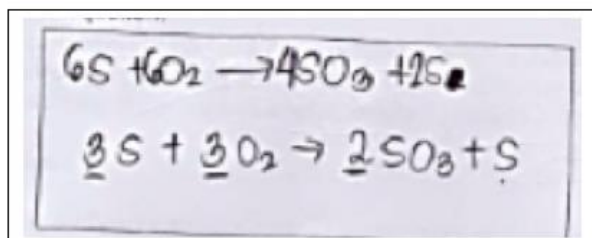 6S + 6O₂ → 4SO₃ + 2S
3S + 3O₂ → 2SO₃ + S